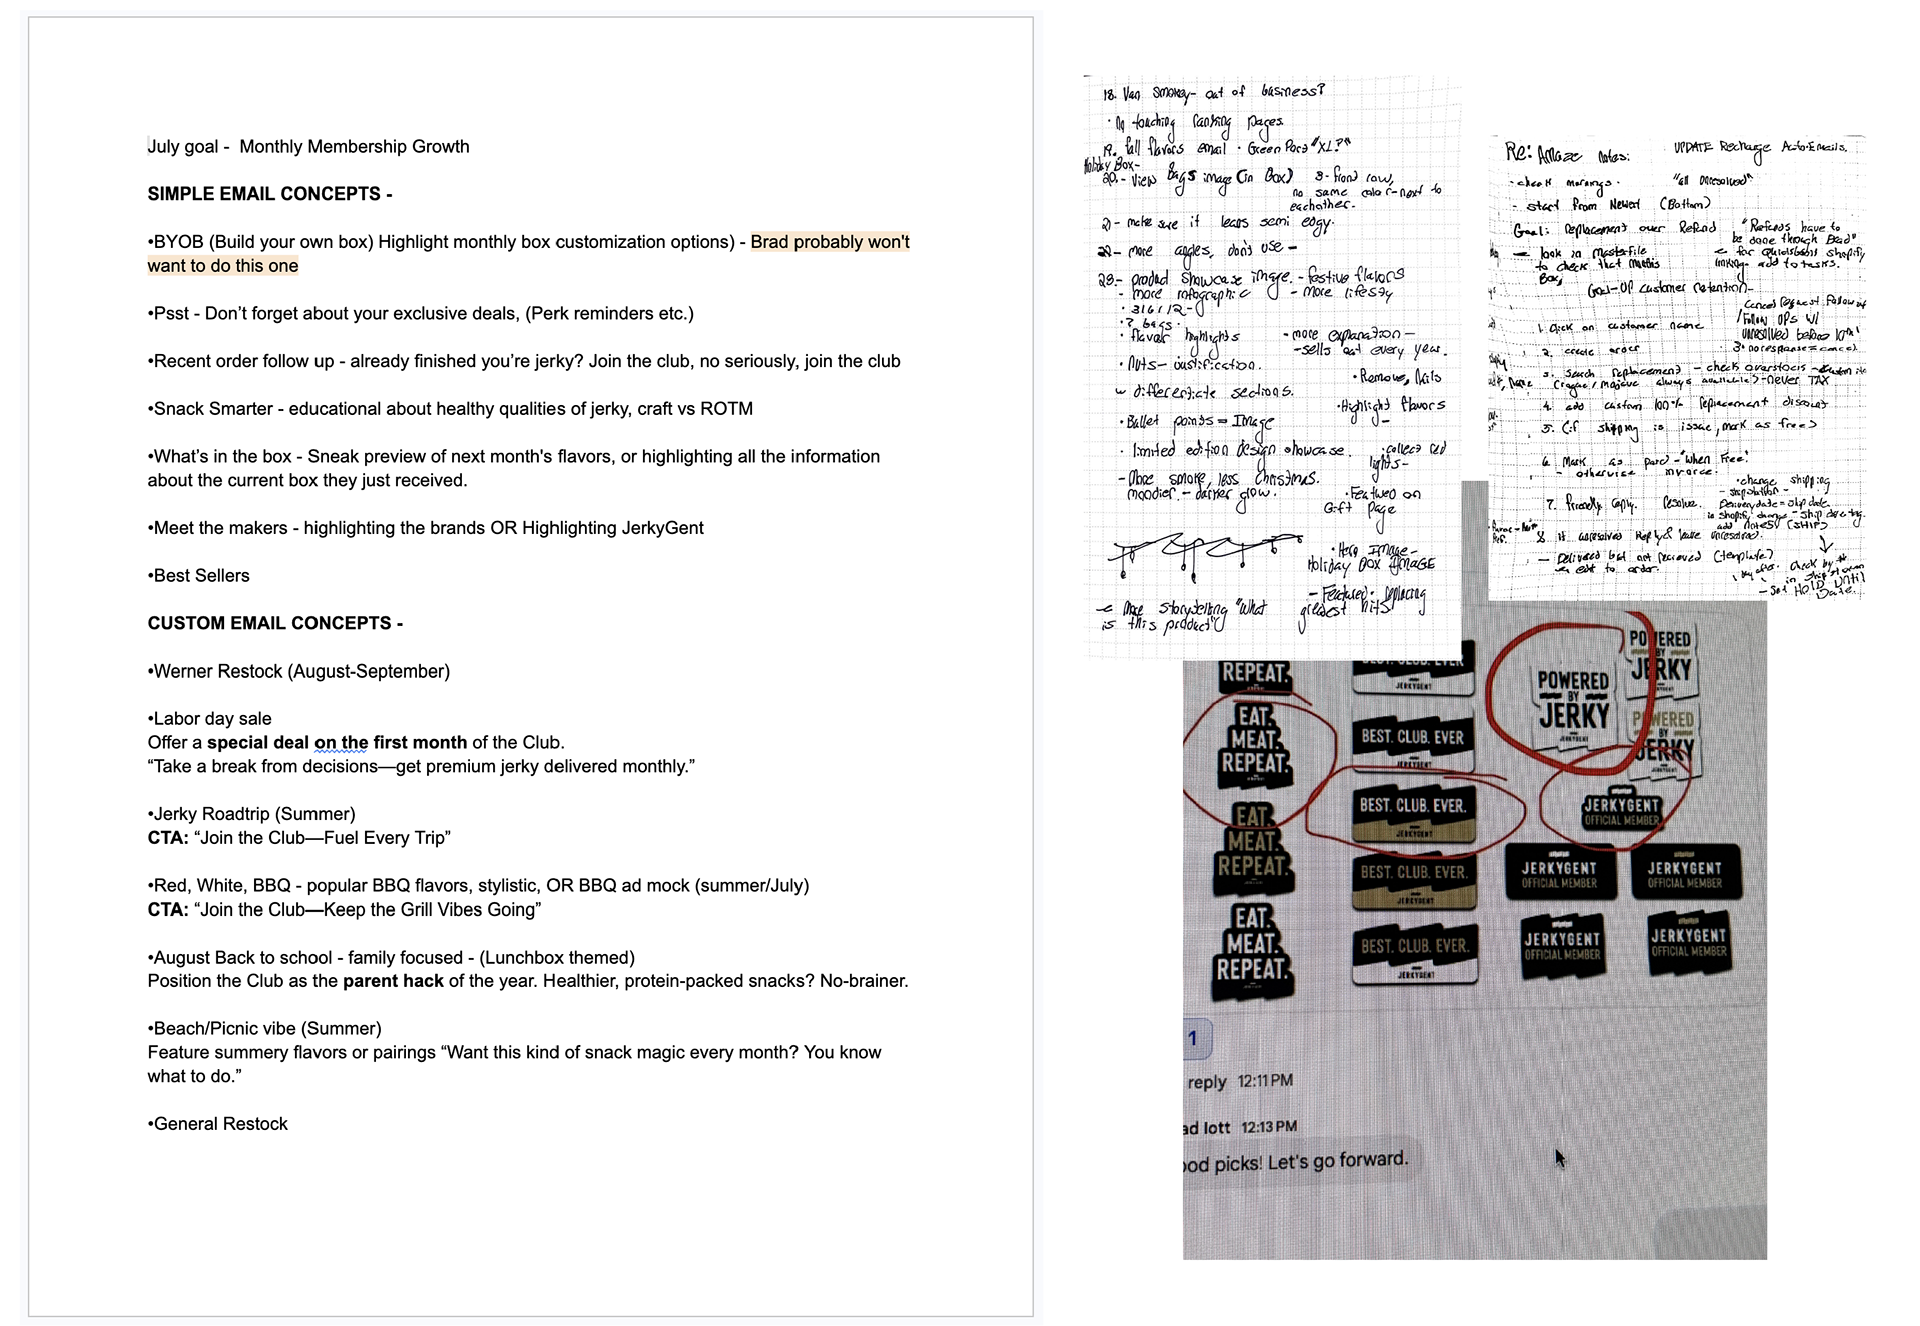 July goal -  Monthly Membership Growth
SIMPLE EMAIL CONCEPTS -
•BYOB (Build your own box) Highlight monthly box customization options) - Brad probably won't
want to do this one
•Psst - Don’t forget about your exclusive deals, (Perk reminders etc.)
•Recent order follow up - already finished you’re jerky? Join the club, no seriously, join the club
•Snack Smarter - educational about healthy qualities of jerky, craft vs ROTM
•What’s in the box - Sneak preview of next month's flavors, or highlighting all the information
about the current box they just received.
•Meet the makers - highlighting the brands OR Highlighting JerkyGent
•Best Sellers
CUSTOM EMAIL CONCEPTS -
•Werner Restock (August-September)
•Labor day sale
Offer a special deal on the first month of the Club.
“Take a break from decisions—get premium jerky delivered monthly.”
•Jerky Roadtrip (Summer)
CTA: “Join the Club—Fuel Every Trip”
•Red, White, BBQ - popular BBQ flavors, stylistic, OR BBQ ad mock (summer/July)
CTA: “Join the Club—Keep the Grill Vibes Going”
•August Back to school - family focused - (Lunchbox themed)
Position the Club as the parent hack of the year. Healthier, protein-packed snacks? No-brainer.
•Beach/Picnic vibe (Summer)
Feature summery flavors or pairings “Want this kind of snack magic every month? You know
what to do.”
•General Restock
18. Van Smokey- out of business?
• No touching ranking pages.
19. fall flavors email • Green Pard "XL?"
Holiday Box-
20.- View Bags image (in Box) 3- front row,
no same color-next to
eachother.
21- make sure it leans semi edgy.
22- more angles, don't use -
23.- product showcase image. - festive flavors
- more infographic - More lifesty
• 3/6/12-
• ? bags.
• flavor highlights - more explanation -
- sells out every year.
• Nuts- justification.
• Remove, Nuts
differentiate sections.
• Highlight flavors
• Bullet points = Image
• limited edition design showcase. • collect red
lights-
- More smoke, less Christmas.
moodier. - darker glow. • Featured on
Gift Page
• Hero Image-
Holiday Box IMAGE
- Featured • replacing
greatest hits
More storytelling "What
is this product"
Re: Amaze Notes: UPDATE Recharge Auto-Emails.
- check mornings. "all unresolved"
- start from Newest (Bottom)
Goal: Replacement over Refund "Refunds have to
be done through Brad"
look in Masterfile for Quickbooks shopify
to check that months linking- add to tasks.
Box,
Goal-UP customer retention-
Cancel Request Follow up
Follow UPS w/
1. Click on customer name unresolved before
2. create order 3• no response = cancel
3. Search replacement - check overstocks
always available)- never TAX
4. add custom 100% replacement discount
5. (if shipping is issue, mark as free)
6. Mark as paid - "When Free"
- otherwise invoice.
• change shipping
7. friendly reply. Resolve. Delivery date = ship date
in shopify, change - ship date tag.
add Notes (SHIP)
8. if unresolved Reply & leave unresolved.
- Delivered but not recieved (template)
edit to order. check by #
in
- Set HOLD UNTIL
Date.
REPEAT.
BEST. CLUB. EVER
JERKYGENT
POWERED
BY
JERKY
POWERED
BY
JERKY
JERKYGENT
EAT.
MEAT.
REPEAT.
BEST. CLUB. EVER
JERKYGENT
POWERED
BY
JERKY
BEST. CLUB. EVER.
JERKYGENT
JERKYGENT
OFFICIAL MEMBER
EAT.
MEAT.
REPEAT.
BEST. CLUB. EVER.
JERKYGENT
JERKYGENT
OFFICIAL MEMBER
JERKYGENT
OFFICIAL MEMBER
EAT.
MEAT.
REPEAT.
BEST. CLUB. EVER.
JERKYGENT
JERKYGENT
OFFICIAL MEMBER
JERKYGENT
OFFICIAL MEMBER
1
reply 12:11 PM
ad lott 12:13 PM
ood picks! Let's go forward.